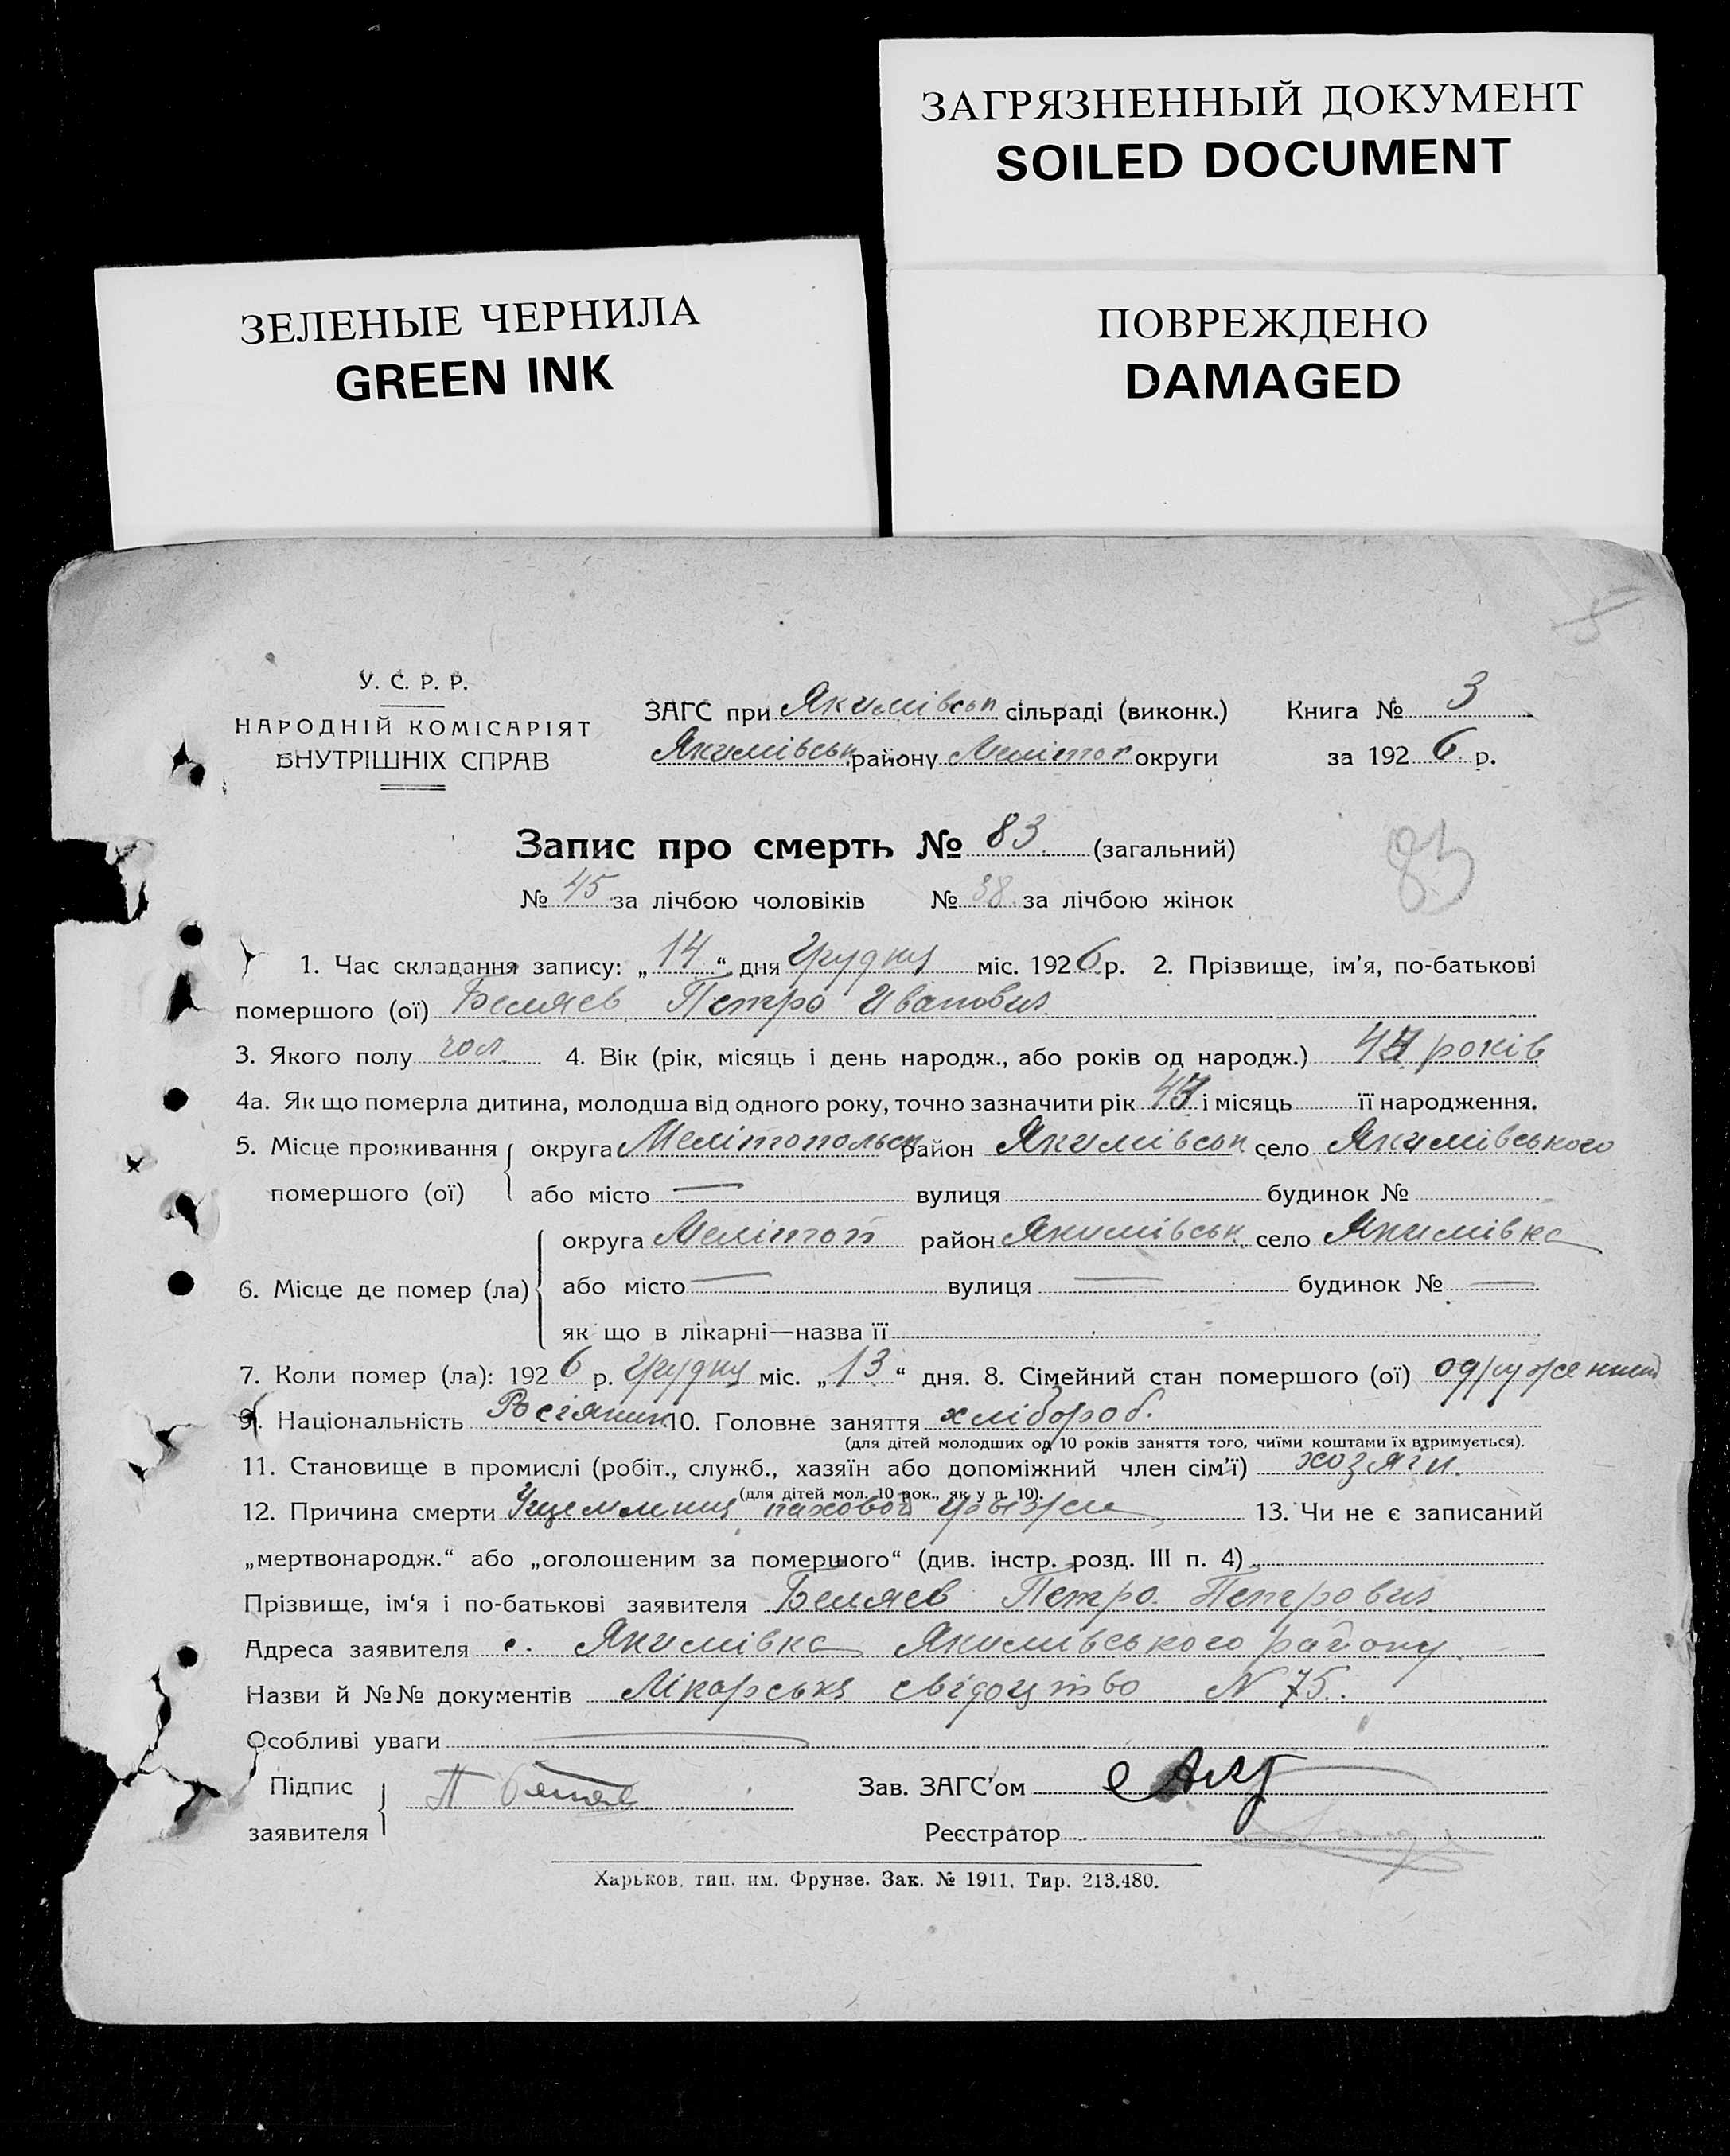 ЗАГРЯЗНЕННЫЙ ДОКУМЕНТ
SOILED DOCUMENT
ЗЕЛЕНЫЕ ЧЕРНИЛА
GREEN INK
ПОВРЕЖДЕНО
DAMAGED
У. С. Р. Р.
НАРОДНІЙ КОМІСАРІЯТ
ВНУТРІШНІХ СПРАВ
ЗАГС при Якимівськ сільраді (виконк.) Книга № 3
Якимівськ району Мелітоп округи за 1926 р.
Запис про смерть № 83. (загальний)
83
№ 45 за лічбою чоловіків № 38 за лічбою жінок
1. Час складання запису: „14“ дня Грудня міс. 1926 р. 2. Прізвище, ім’я, по-батькові
помершого (ої) Беляев Петро Иванович
3. Якого полу чол. 4. Вік (рік, місяць і день народж., або років од народж.) років
4а. Як що померла дитина, молодша від одного року, точно зазначити рік і місяць її народження.
5. Місце проживання помершого (ої) округа Мелітопольск район Якимівськ село Якимівського
або місто — вулиця будинок №
6. Місце де помер (ла) округа Мелітоп район Якимівськ село Якимівка
або місто — вулиця — будинок № —
як що в лікарні—назва її
7. Коли помер (ла): 1926 р. Грудня міс. „13“ дня. 8. Сімейний стан помершого (ої) одружений
9. Національність Росіянин 10. Головне заняття хлібороб.
(для дітей молодших од 10 років заняття того, чиїми коштами їх втримується).
11. Становище в промислі (робіт., служб., хазяїн або допоміжний член сім’ї) хозяїн.
(для дітей мол. 10 рок., як у п. 10).
12. Причина смерти Ущемлення пахової грыжи 13. Чи не є записаний
„мертвонародж.“ або „оголошеним за помершого“ (див. інстр. розд. III п. 4)
Прізвище, ім‘я і по-батькові заявителя Беляев Петро Петрович
Адреса заявителя с. Якимівка Якимівського району.
Назви й №№ документів Лікарська свідоцтво N 75.
Особливі уваги —
Підпис заявителя П Зав. ЗАГС’ом
Реєстратор
Харьков, тип. им. Фрунзе. Зак. № 1911. Тир. 213.480.